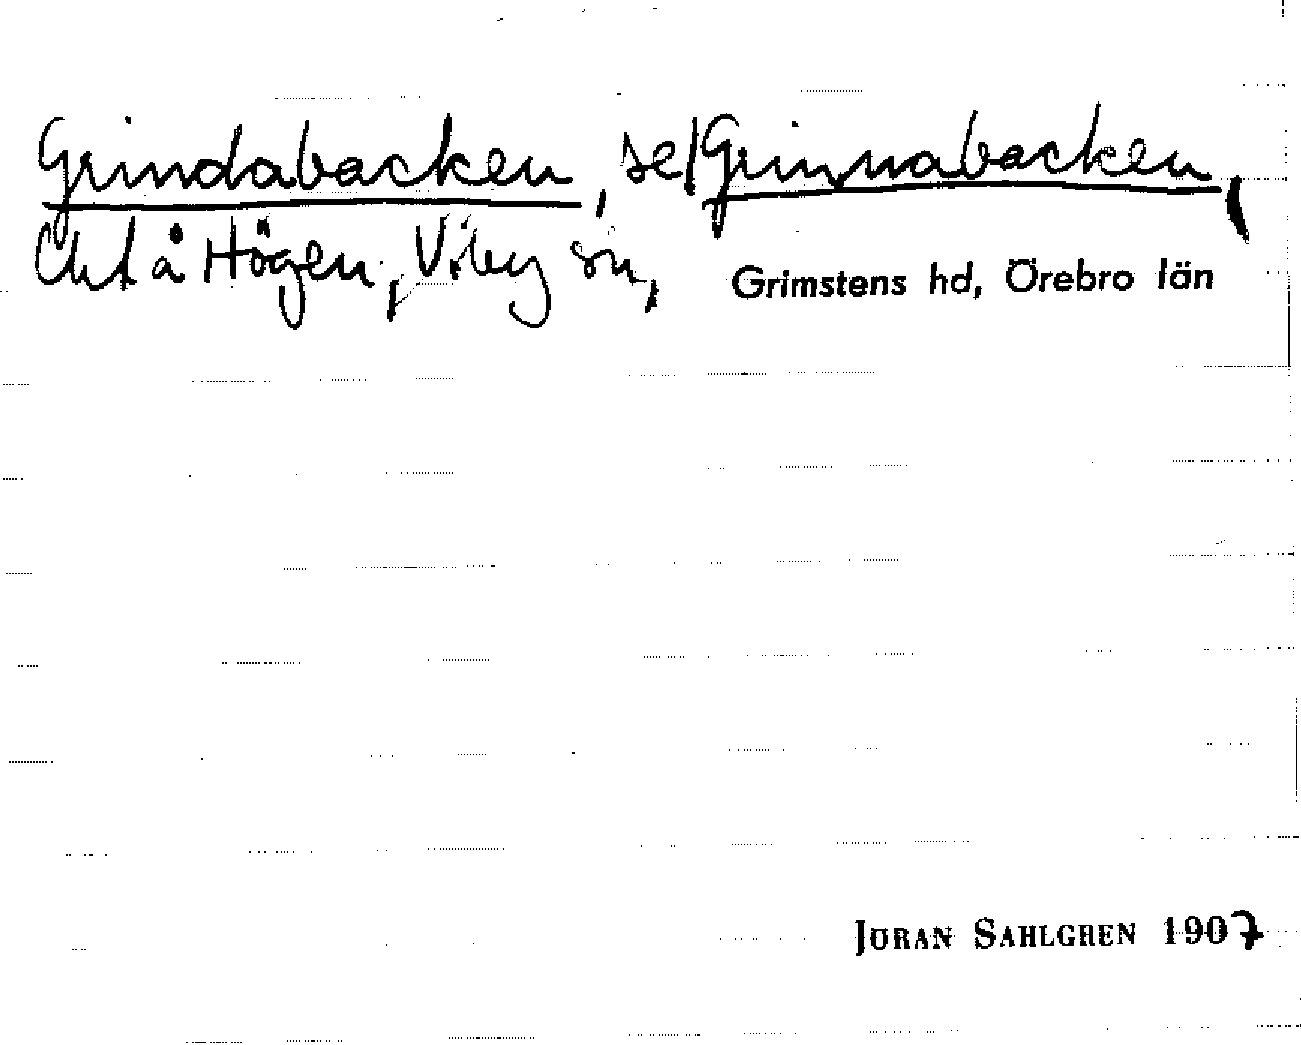 Grindabacken, se Grinnabacken,
å Högen, Viby sn, Grimstens hd, Örebro län
JÖRAN SAHLGREN 1907